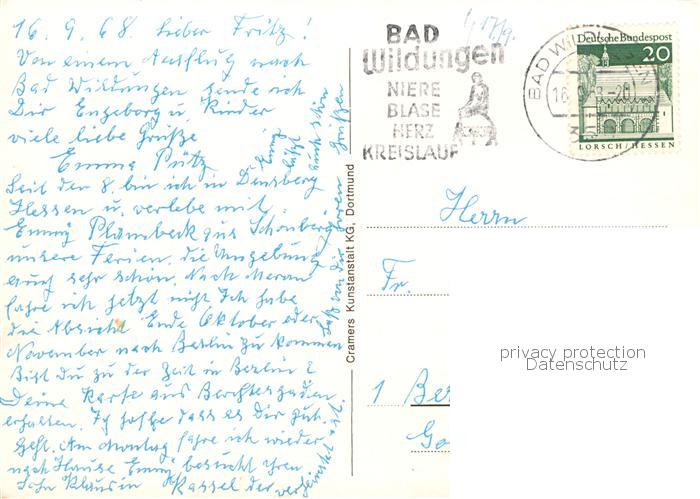 16.9.68. Lieber Fritz!
Von einem Ausflug nach
Bad Wildungen sende ich
Dir Ingeborg u. Kinder
viele liebe Grüße
Emma
Seit den 8. bin ich in
Hessen u. verlebe mit
Emmy Plambeck aus Schönberg
unsere Ferien. die Umgebung
auch sehr schön. Nach Meran
fahre ich jetzt nicht Ich habe
die Absicht Ende Oktober oder
November nach Berlin zu kommen
Bist Du zu der Zeit in Berlin?
Deine Karte aus Berchtesgaden
erhalten. Ich hoffe dass es Dir gut
geht. Am Montag fahre ich wieder
nach Hause Emmy besucht ihren
Sohn Klaus in Kassel der verheiratet ist.
Laß von Dir hören
Emmy läßt auch schön grüßen
Cramers Kunstanstalt KG, Dortmund
BAD
Wildungen
NIERE
BLASE
HERZ
KREISLAUF
BAD WIL
16.9.68-20
Deutsche Bundespost
20
LORSCH/HESSEN
Herrn
Fr.
1 Ber
Go
privacy protection
Datenschutz